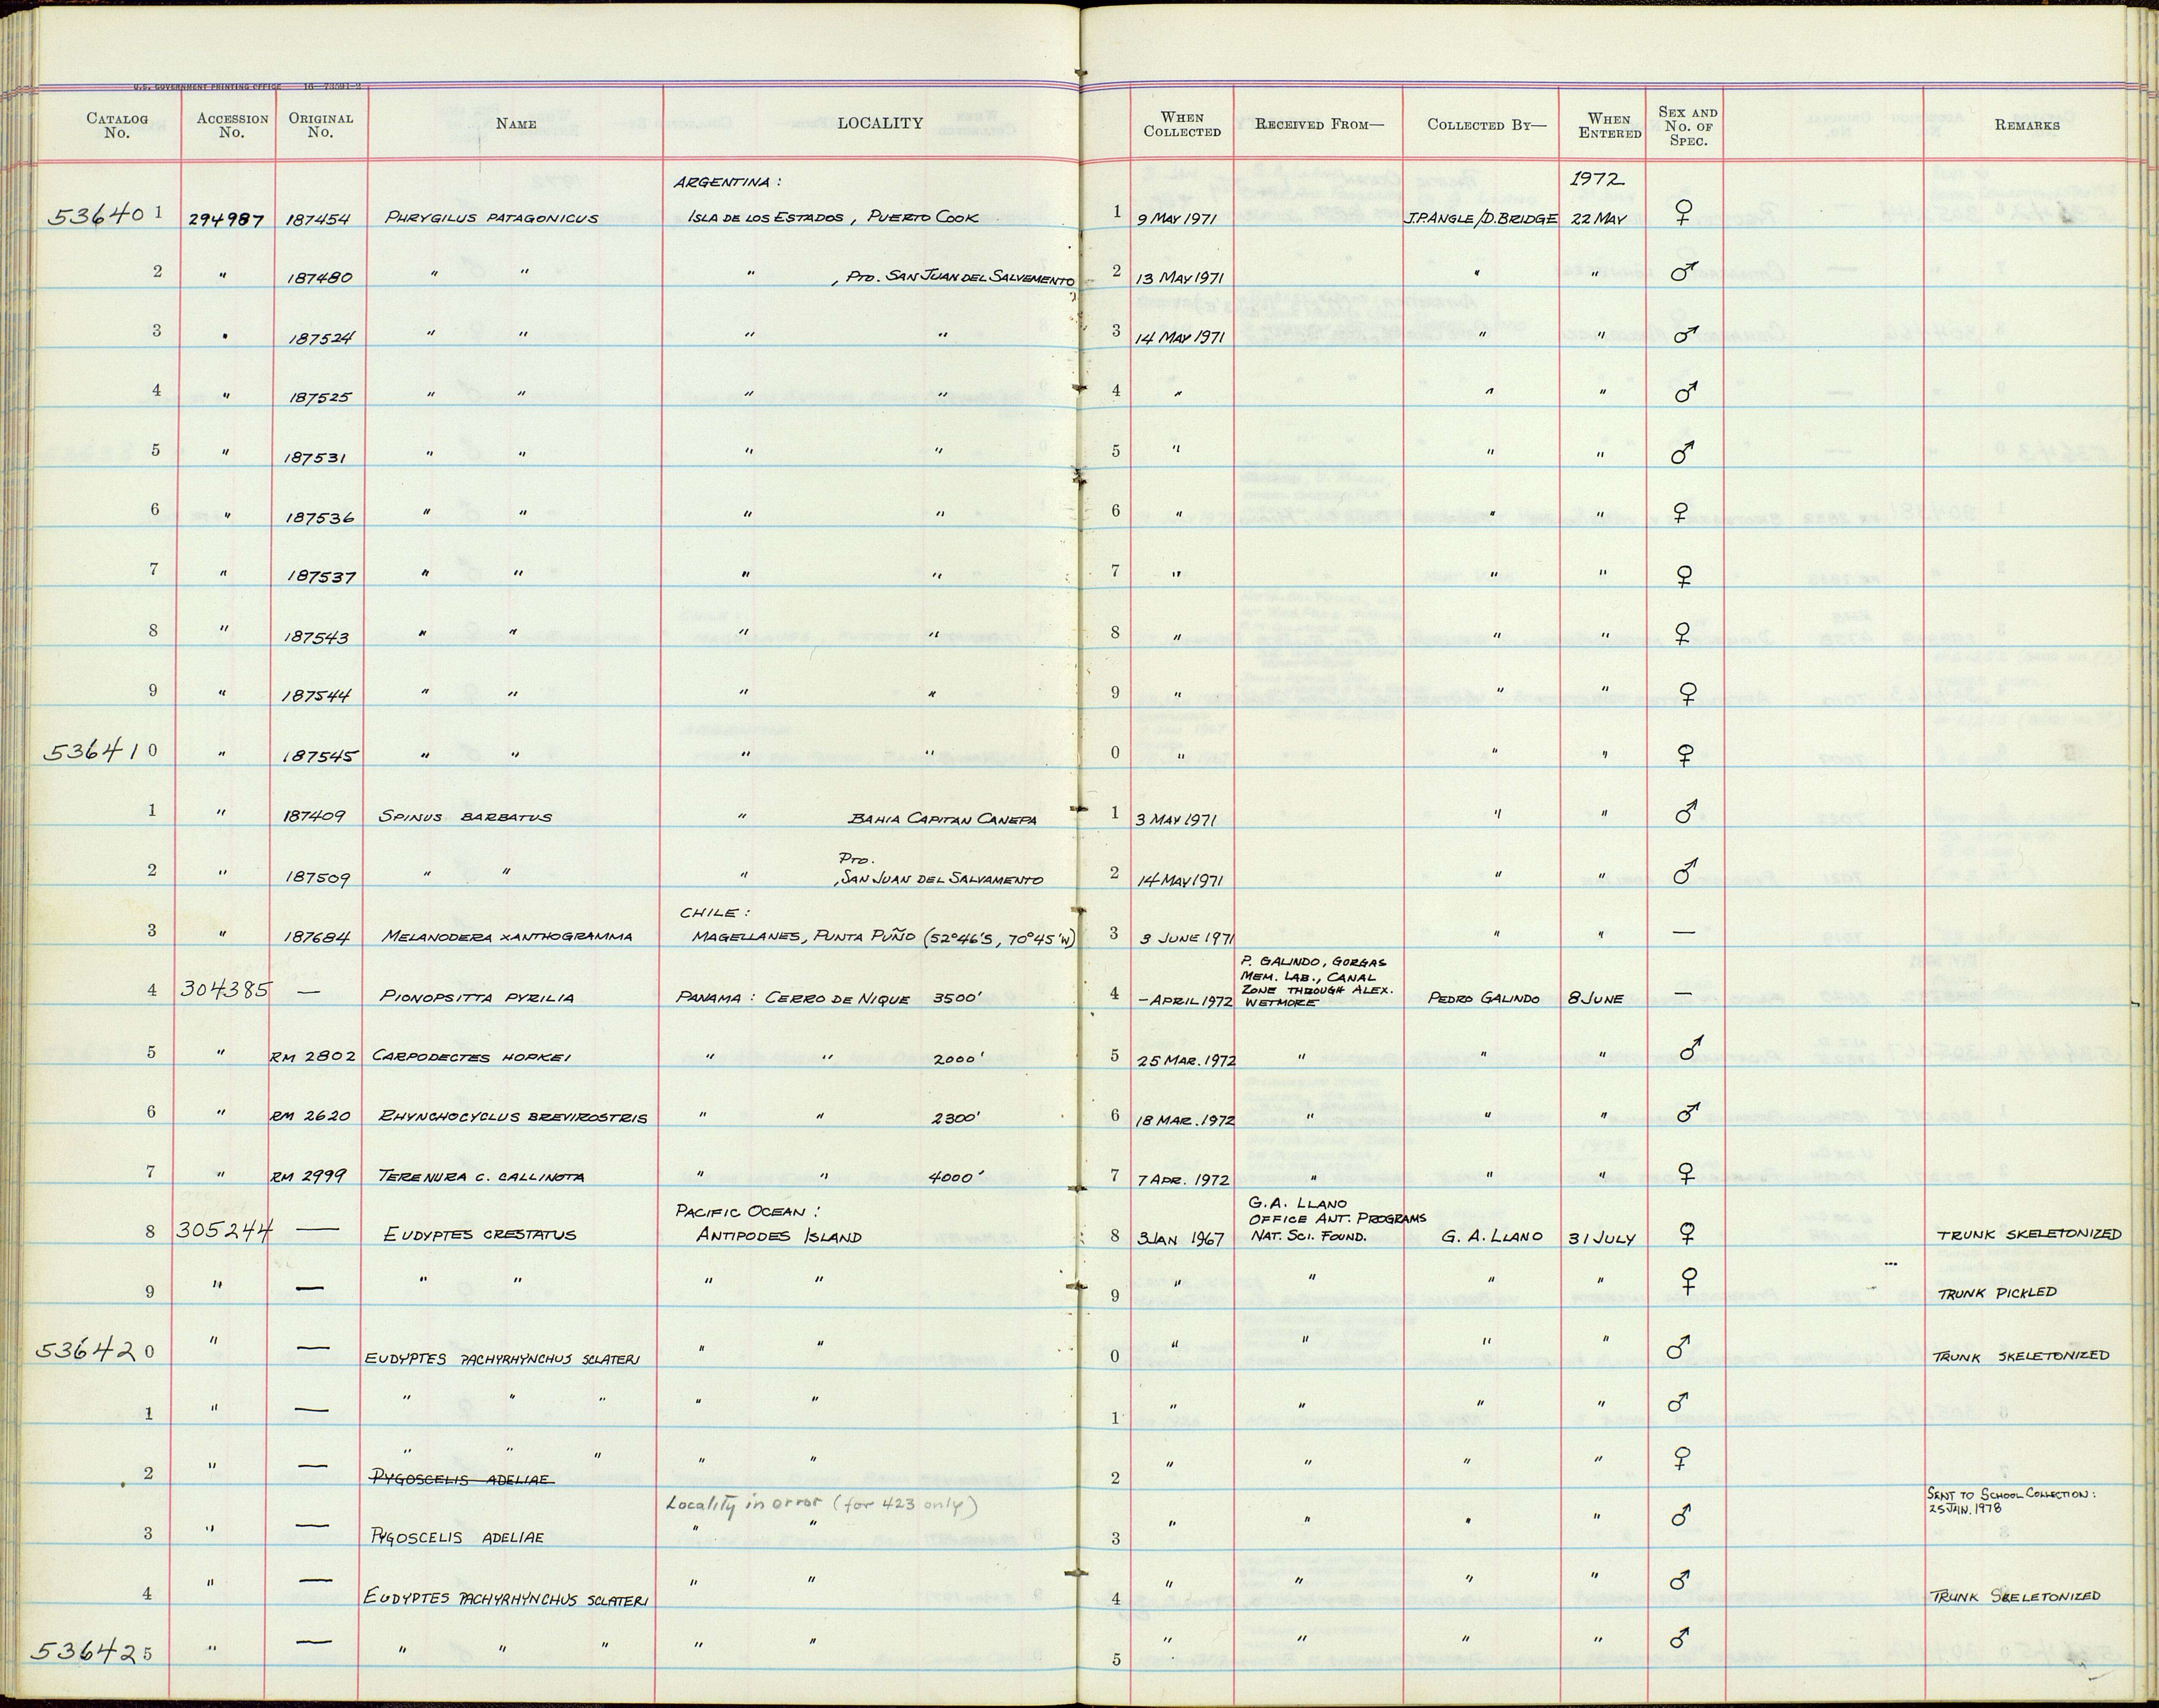 U.S. GOVERNMENT PRINTING OFFICE 16—73591-2
CATALOG No. ACCESSION No. ORIGINAL No. NAME LOCALITY WHEN COLLECTED RECEIVED FROM— COLLECTED BY— WHEN ENTERED SEX AND No. OF SPEC. REMARKS
ARGENTINA: 1972
536401 294987 187454 PHRYGILUS PATAGONICUS ISLA DE LOS ESTADOS, PUERTO COOK 1 9 MAY 1971 J.P.ANGLE/D.BRIDGE 22 MAY ♀
2 " 187480 " " " , PTO. SAN JUAN DEL SALVEMENTO 2 13 MAY 1971 " " ♂
3 " 187524 " " " " 3 14 MAY 1971 " " ♂
4 " 187525 " " " " 4 " " " ♂
5 " 187531 " " " " 5 " " " ♂
6 " 187536 " " " " 6 " " " ♀
7 " 187537 " " " " 7 " " " ♀
8 " 187543 " " " " 8 " " " ♀
9 " 187544 " " " " 9 " " " ♀
536410 " 187545 " " " " 0 " " " ♀
1 " 187409 SPINUS BARBATUS " BAHIA CAPITAN CANEPA 1 3 MAY 1971 " " ♂
PTO.
2 " 187509 " " " ,SAN JUAN DEL SALVAMENTO 2 14 MAY 1971 " " ♂
CHILE:
3 " 187684 MELANODERA XANTHOGRAMMA MAGELLANES, PUNTA PUÑO (52°46'S, 70°45'W) 3 3 JUNE 1971 " " —
P. GALINDO, GORGAS
MEM. LAB., CANAL
ZONE THROUGH ALEX.
4 304385 — PIONOPSITTA PYRILIA PANAMA: CERRO DE NIQUE 3500' 4 – APRIL 1972 WETMORE PEDRO GALINDO 8 JUNE —
5 " RM 2802 CARPODECTES HOPKEI " " 2000' 5 25 MAR. 1972 " " " ♂
6 " RM 2620 RHYNCHOCYCLUS BREVIROSTRIS " " 2300' 6 18 MAR. 1972 " " " ♂
7 " RM 2999 TERENURA C. CALLINOTA " " 4000' 7 7 APR. 1972 " " " ♀
PACIFIC OCEAN: G.A. LLANO
OFFICE ANT. PROGRAMS
8 305244 — EUDYPTES CRESTATUS ANTIPODES ISLAND 8 3 JAN 1967 NAT. SCI. FOUND. G. A. LLANO 31 JULY ♀ TRUNK SKELETONIZED
9 " — " " " " 9 " " " " ♀ TRUNK PICKLED
536420 " — EUDYPTES PACHYRHYNCHUS SCLATERI " " 0 " " " " ♂ TRUNK SKELETONIZED
1 " — " " " " " 1 " " " " ♂
2 " — " " " " " 2 " " " " ♀
PYGOSCELIS ADELIAE
Locality in error (for 423 only) SENT TO SCHOOL COLLECTION:
25 JAN. 1978
3 " — PYGOSCELIS ADELIAE " " 3 " " " " ♂
4 " — EUDYPTES PACHYRHYNCHUS SCLATERI " " 4 " " " " ♂ TRUNK SKELETONIZED
536425 " — " " " " " 5 " " " " ♂